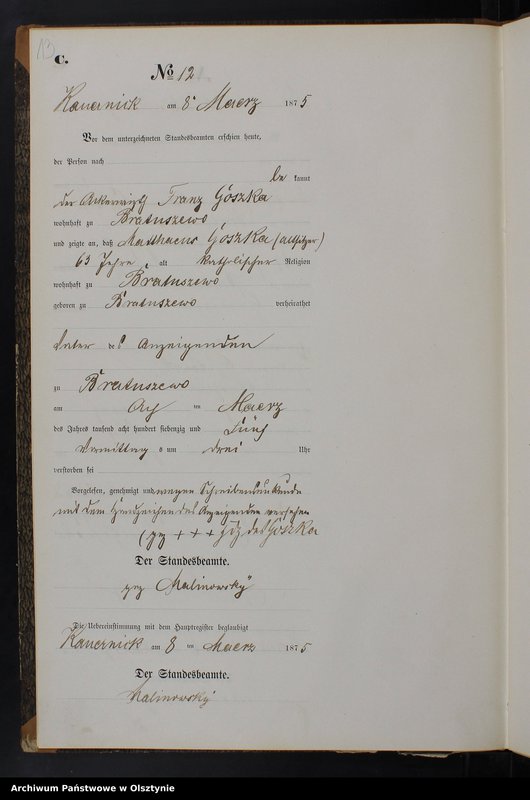 13
C.
No 12
Kauernick am 8t Maerz 1875
Vor dem unterzeichneten Standesbeamten erschien heute,
der Person nach
be kannt
der Ackerwirth Franz Goszka
wohnhaft zu Bratuszewo
und zeigte an, daß Matthaeus Goszka (Altsitzer)
63 Jahre alt katholischer Religion
wohnhaft zu Bratuszewo
geboren zu Bratuszewo verheirathet
Vater des Anzeigenden
zu Bratuszewo
am ten Maerz
des Jahres tausend acht hundert siebenzig und fünf
Vormittags um drei Uhr
verstorben sei
Vorgelesen, genehmigt und wegen Schreibensunkunde
mit dem Handzeichen des Anzeigenden versehen
(gez + + + Hdz des Goszka
Der Standesbeamte.
gez Malinowsky
Die Uebereinstimmung mit dem Hauptregister beglaubigt
Kauernick am 8 ten Maerz 1875
Der Standesbeamte.
Malinowsky
Archiwum Państwowe w Olsztynie